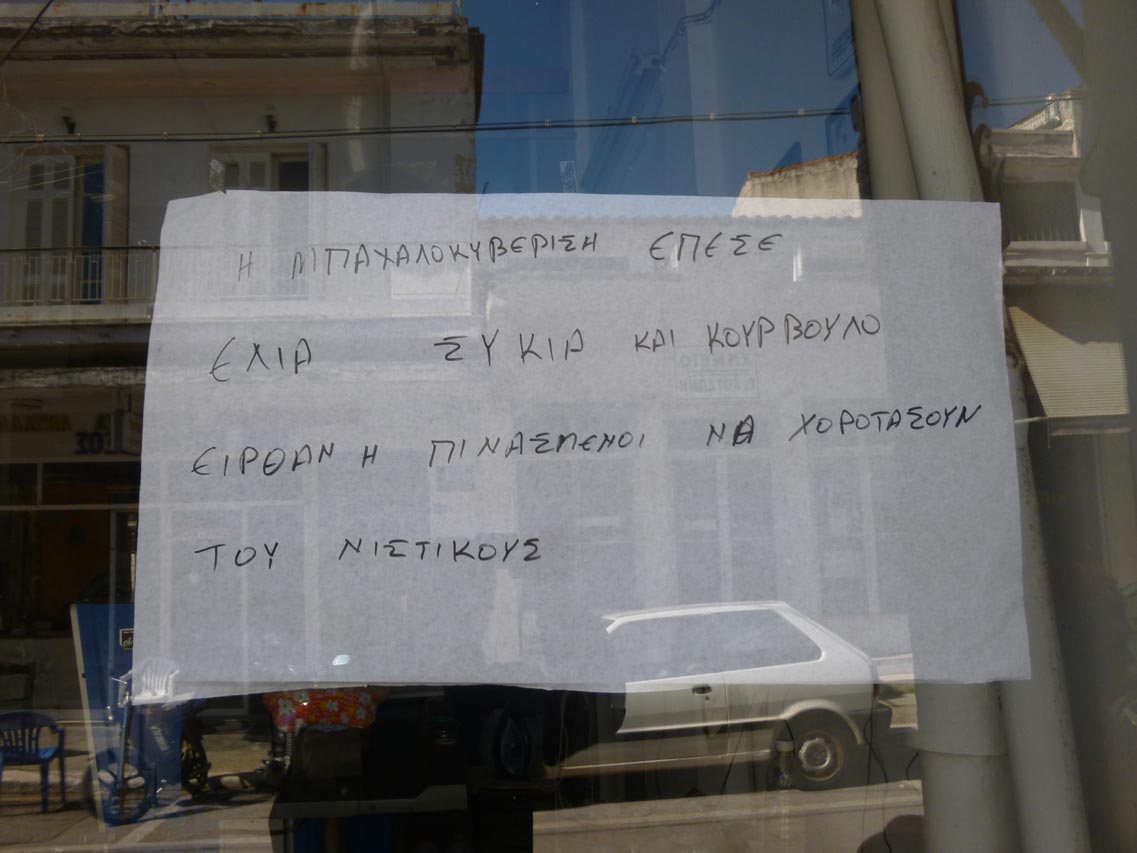 Η ΜΠΑΧΑΛΟΚΥΒΕΡΙΣΗ ΕΠΕΣΕ
ΕΛΙΑ ΣΥΚΙΑ ΚΑΙ ΚΟΥΡΒΟΥΛΟ
ΕΙΡΘΑΝ Η ΠΙΝΑΣΜΕΝΟΙ ΝΑ ΧΟΡΟΤΑΣΟΥΝ
ΤΟΥ ΝΙΣΤΙΚΟΥΣ